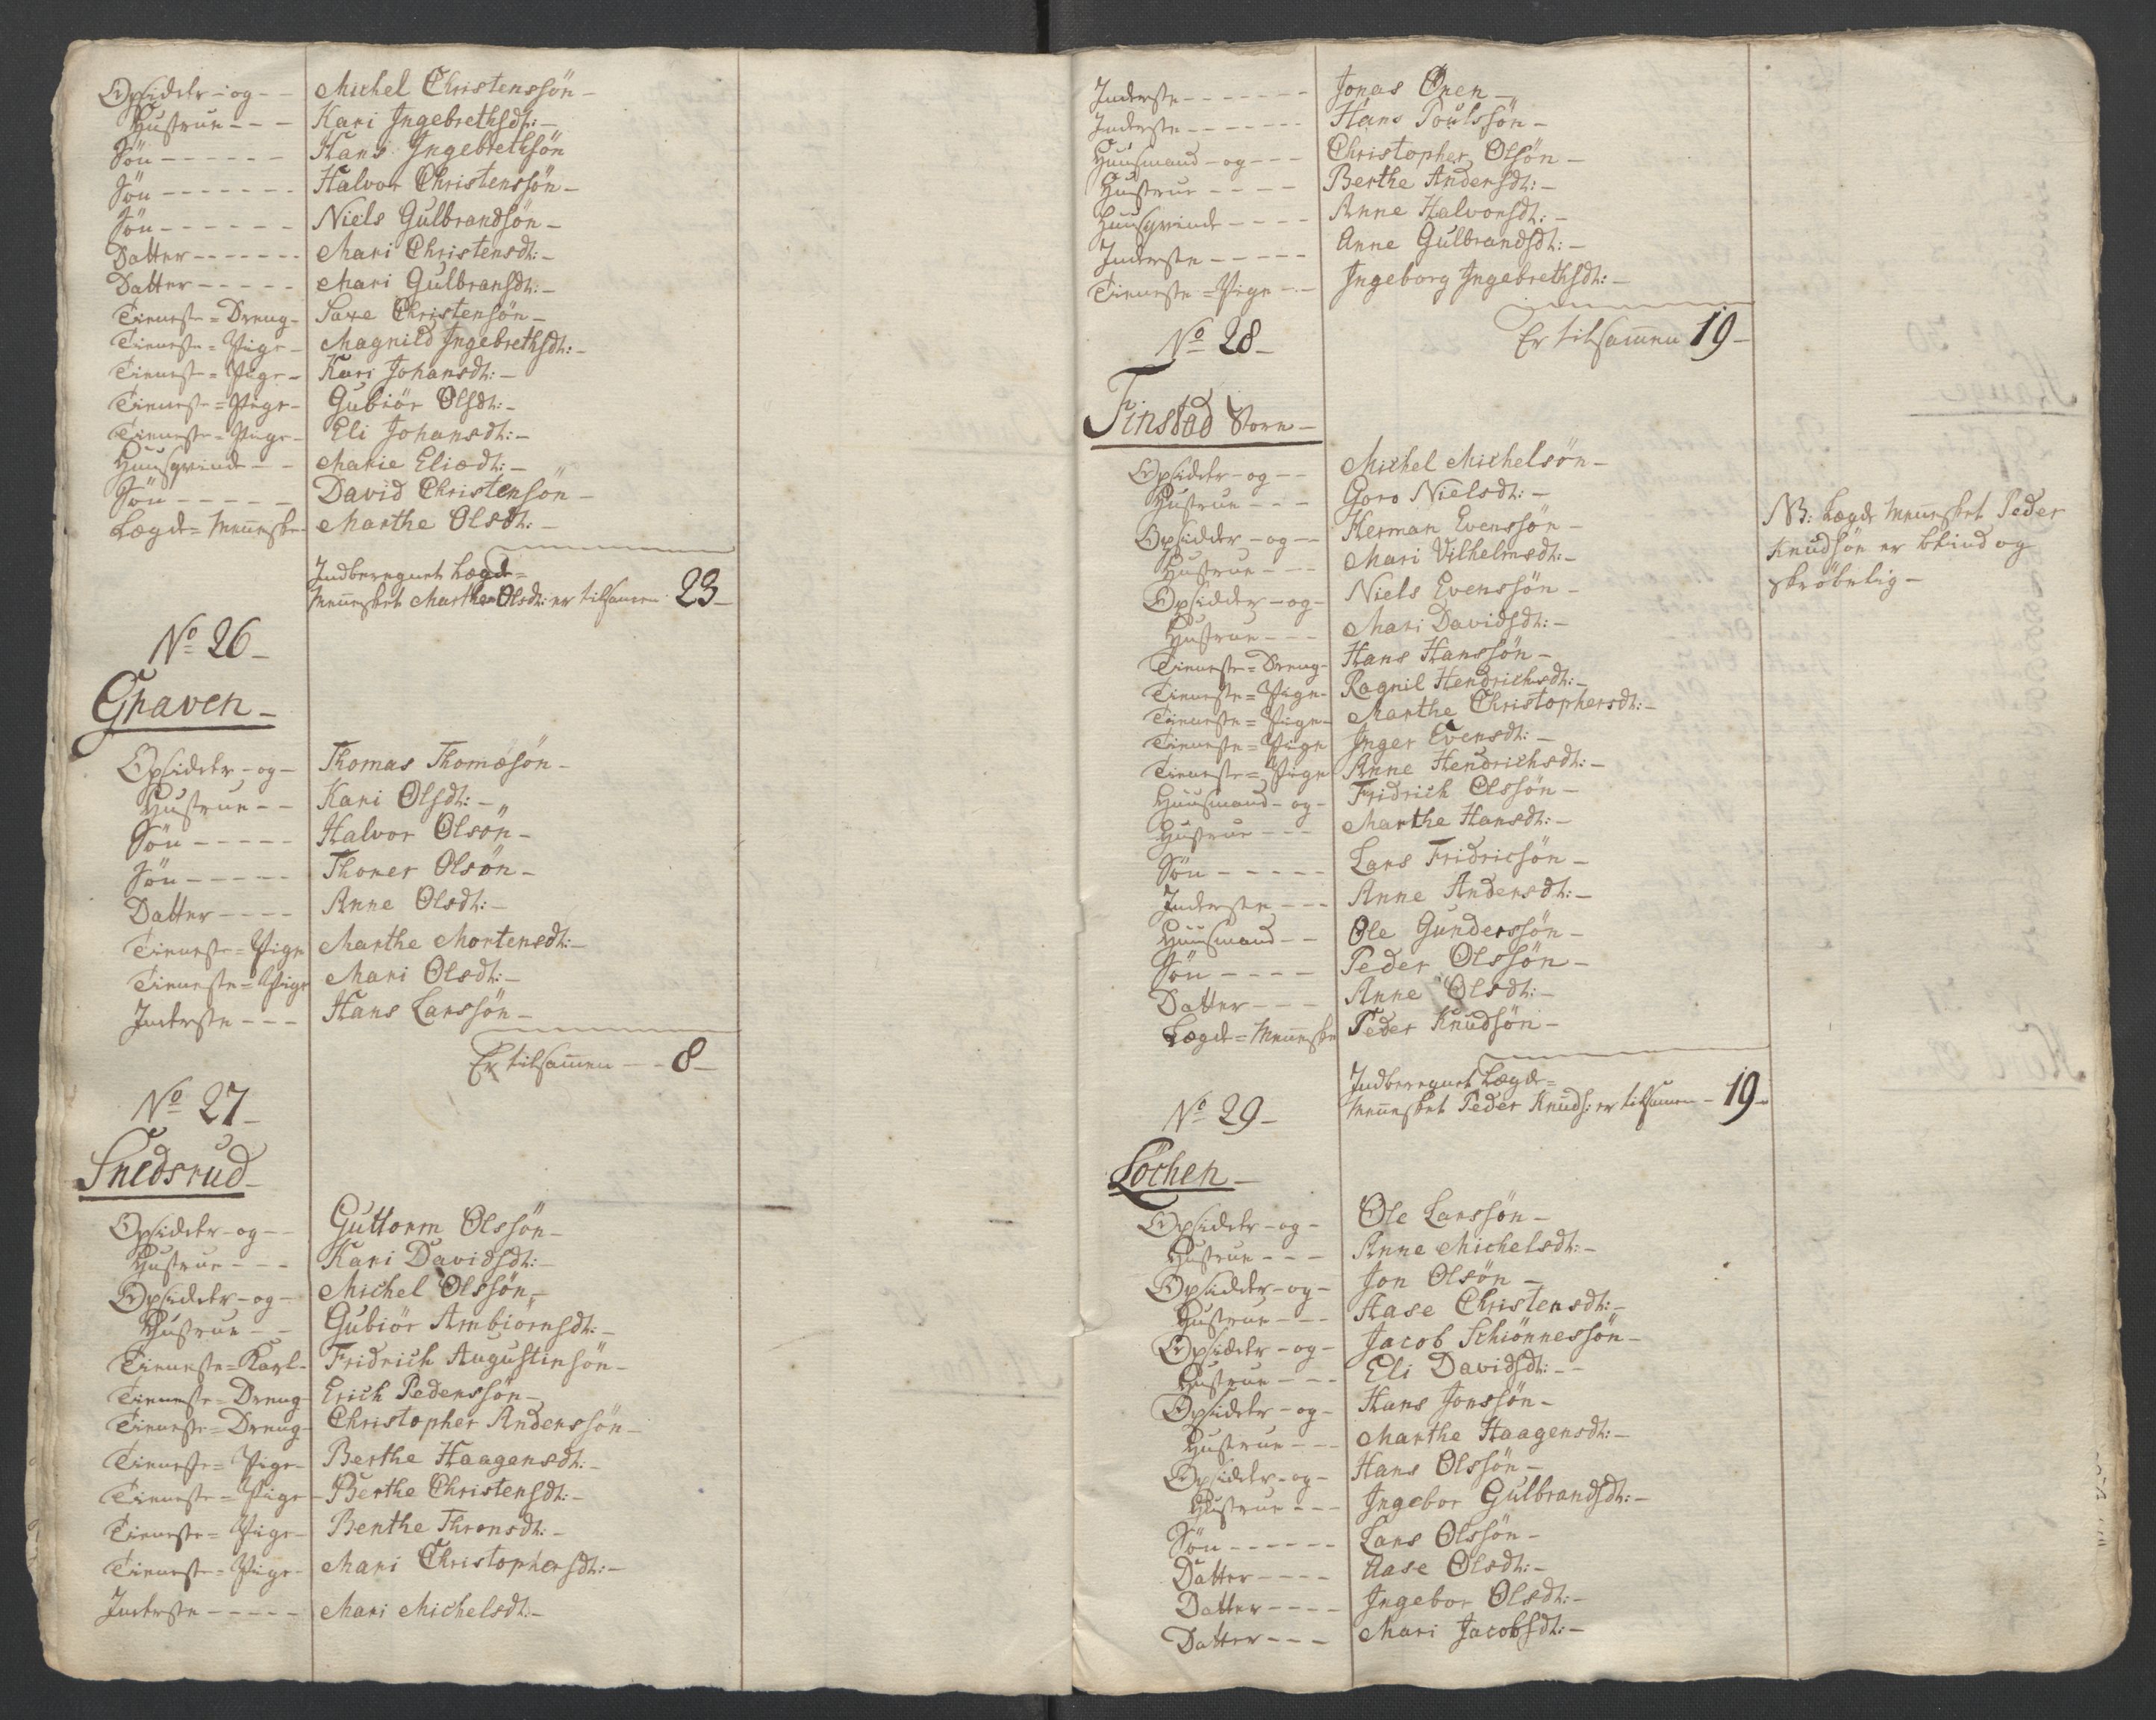 Opsidder - og - - Michel Christenssön -
Hustrue - - - Kari Ingebrethsdt: -
Sön - - - - - - Hans Ingebrethsön
Sön - - - - - - - Halvor Christenssön -
Sön - - - - - - Niels Gulbrandsön -
Datter - - - - - - - Mari Christensdt: -
Datter - - - - - Mari Gulbransdt: -
Tieneste = Dreng - Saxe Christensön -
Tieneste = Pige - Magnild Ingebrethsdt: -
Tieneste = Pige - Kari Johansdt: -
Tieneste = Pige - Gubiör Olsdt: -
Tieneste = Pige - Eli Johansdt: -
Huusqvinde - - Marie Eliædt: -
Sön - - - - - David Christensön -
Lægde = Menneske - Marthe Olsdt: -
Indberegnet Lægde =
Mennesket Marthe Olsdt: er tilsamen 23 -
No 26 -
Graven -
Opsidder - og - Thomas Thomæsön -
Hustrue - - Kari Olsdt: -
Sön - - - - - Halvor Olsön -
Sön - - - - - Thorer Olsön -
Datter - - - - Anne Olsdt: -
Tieneste = Pige Marthe Mortensdt: -
Tieneste = Pige Mari Olsdt: -
Inderste - - - Hans Larssön -
Er tilsammen - - - 8 -
No 27 -
Snedsrud -
Opsidder - og - - Guttorm Olssön -
Hustrue - - - Kari Davidsdt: -
Opsidder - og - Michel Olssön -
Hustrue - - Gubiör Ambiörnsdt: -
Tieneste = Karl - Fridrich Augustinsön -
Tieneste = Dreng Erich Pederssön -
Tieneste = Dreng - Christopher Anderssön -
Tieneste = Pige - Berthe Haagensdt: -
Tieneste = Pige - Berthe Christensdt: -
Tieneste = Pige - Benthe Thronsdt: -
Tieneste = Pige - Mari Christophersdt: -
Inderste - - - - - Mari Michelsdt: -
Inderste - - - - - - - Jonas Önen -
Inderste - - - - - - - Hans Poulssön -
Huusmand - og - - - Christopher Olsön -
Hustrue - - - - Berthe Andersdt: -
Huusqvinde - - - - Anne Halvorsdt: -
Inderste - - - - - Anne Gulbrandsdt: -
Tieneste = Pige - - Ingeborg Ingebrethsdt: -
Er tilsammen 19 -
No 28 -
Finstad Store -
Opsidder - og - - Michel Michelsön -
Hustrue - - - Goro Nielsdt: -
Opsidder - og - - Herman Evenssön -
Hustrue - - - Mari Vilhelmsdt: -
Opsidder - og - Niels Evenssön -
Hustrue - - - Mari Davidsdt: -
Tieneste = Dreng - Hans Hanssön -
Tieneste = Pige - Ragnil Hendrichsdt: -
Tieneste = Pige - Marthe Christophersdt: -
Tieneste = Pige Inger Evensdt: -
Tieneste = Pige Anne Hendrichsdt: -
Huusmand - og - Fridrich Olssön -
Hustrue - - - Marthe Hansdt: -
Sön - - - - - Lars Fridricsön -
Inderste - - - Anne Andersdt: -
Huusmand - - Ole Gunderssön -
Sön - - - - Peder Olssön -
Datter - - - Anne Olsdt: -
Lægde = Menneske Peder Knudsön -
NB: Lægde Mennesket Peder
Knudsön er blind og
skröbelig -
Indberegnet Lægde =
Mennesket Peder Knuds: er tilsamen - 19 -
No 29 -
Löchen -
Opsidder - og - Ole Larssön -
Hustrue - - - Anne Michelsdt: -
Opsidder - og - Jon Olsön -
Hustrue - - - Aase Christensdt: -
Opsidder - og - Jacob Schiönnessön -
Hustrue - - - Eli Davidsdt: - -
Opsidder - og - Hans Jonssön -
Hustrue - - - Marthe Haagensdt: -
Opsidder - og - Hans Olssön -
Hustrue - - - Ingebor Gulbrandsdt: -
Sön - - - - - - Lars Olssön -
Datter - - - - Aase Olsdt: -
Datter - - - - Ingebor Olsdt: -
Datter - - - Mari Jacobsdt: -